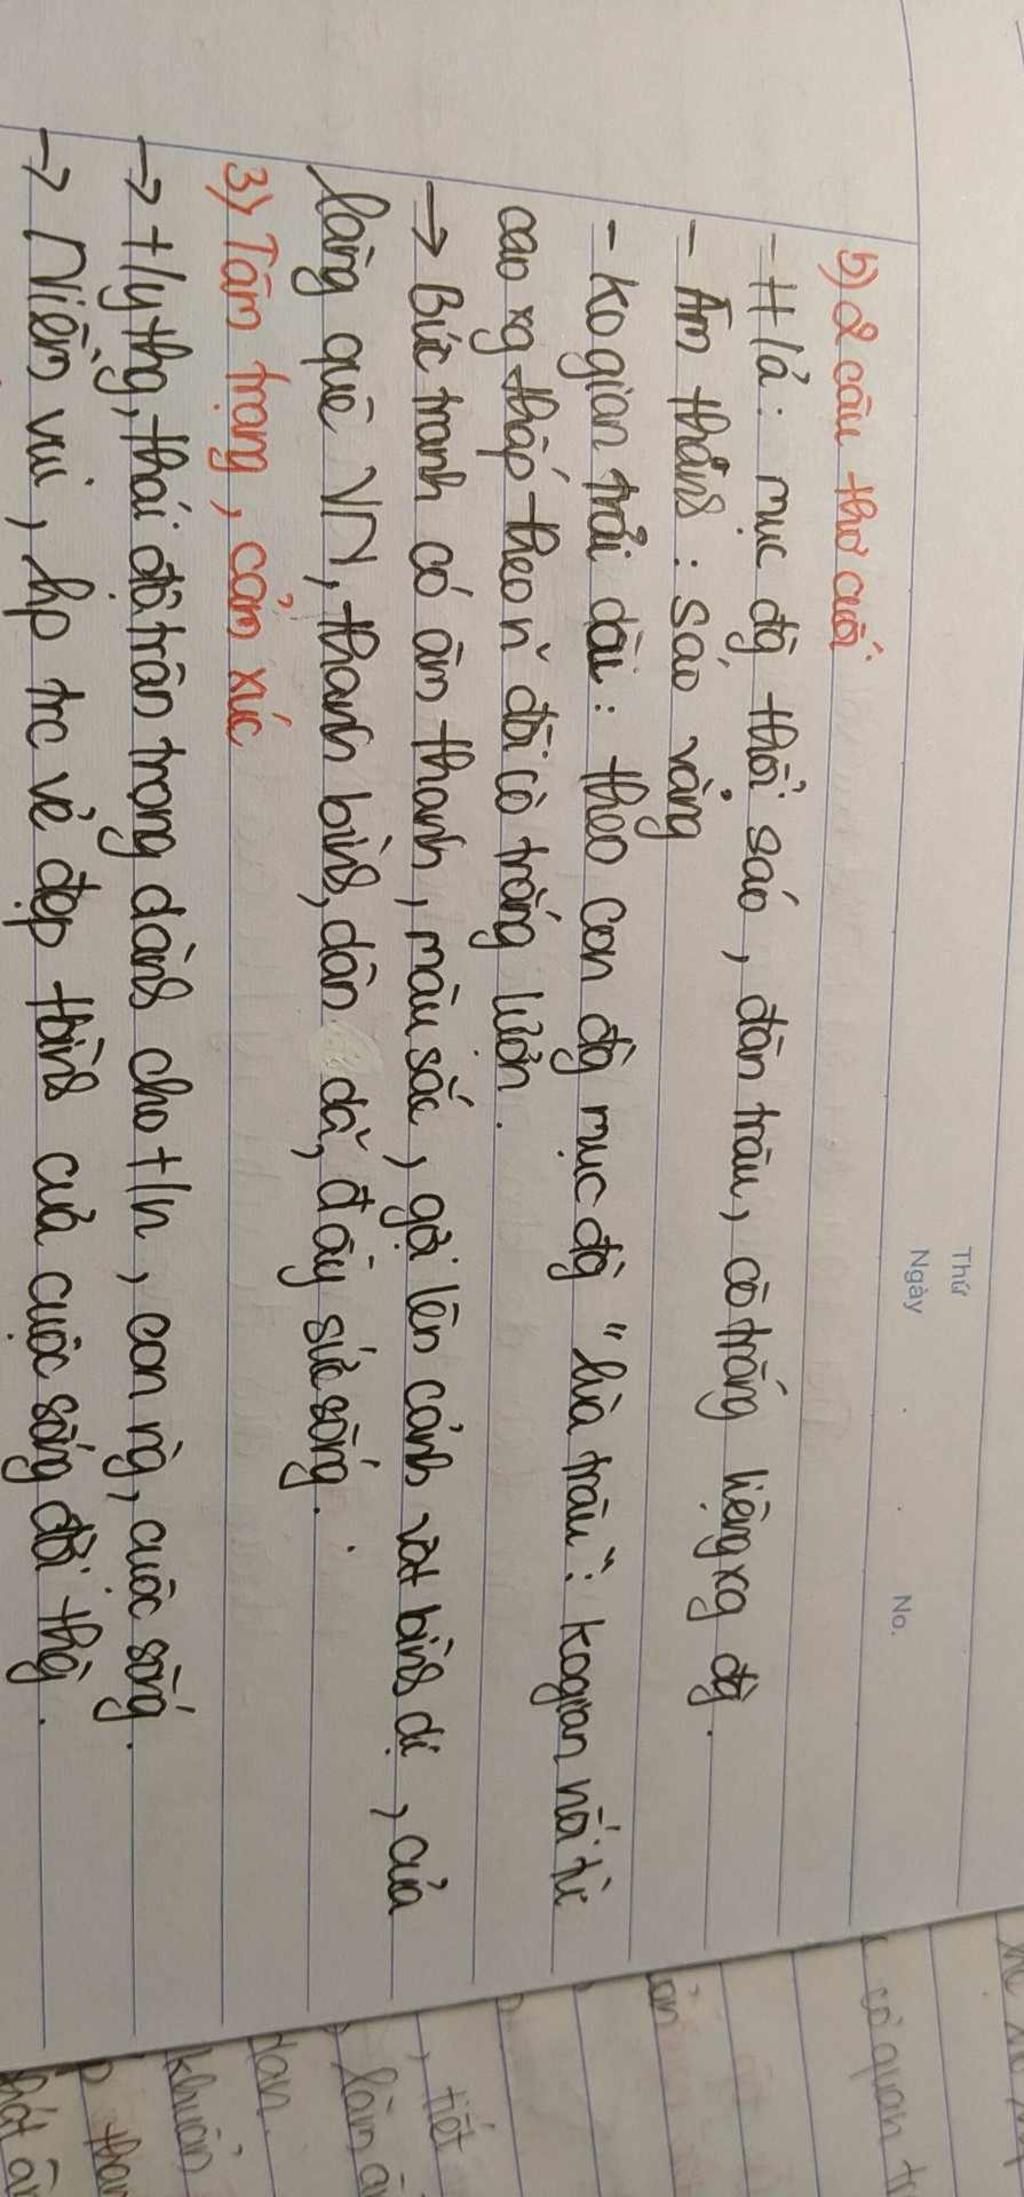 Thứ
Ngày
No.
b) 2 câu thơ cuối
- H/ả: mục đg thổi sáo, đàn trâu, cò trắng liệng xg đg.
- Âm thanh: sáo vẳng
- Ko gian trải dài: theo con đg mục đg "lùa trâu": kogian nối từ
cao xg thấp theo n~ đôi cò trắng lượn.
→ Bức tranh có âm thanh, màu sắc, gợi lên cảnh vật bình dị, của
làng quê VN, thanh bình, dân dã, đầy sức sống.
3) Tâm trạng, cảm xúc
→ t/y thg, thái độ trân trọng dành cho t/n, con ng, cuộc sống.
→ Niềm vui, hp trc vẻ đẹp thanh bình của cuộc sống đời thg.
có quan tr
tiết
làm
khuẩn